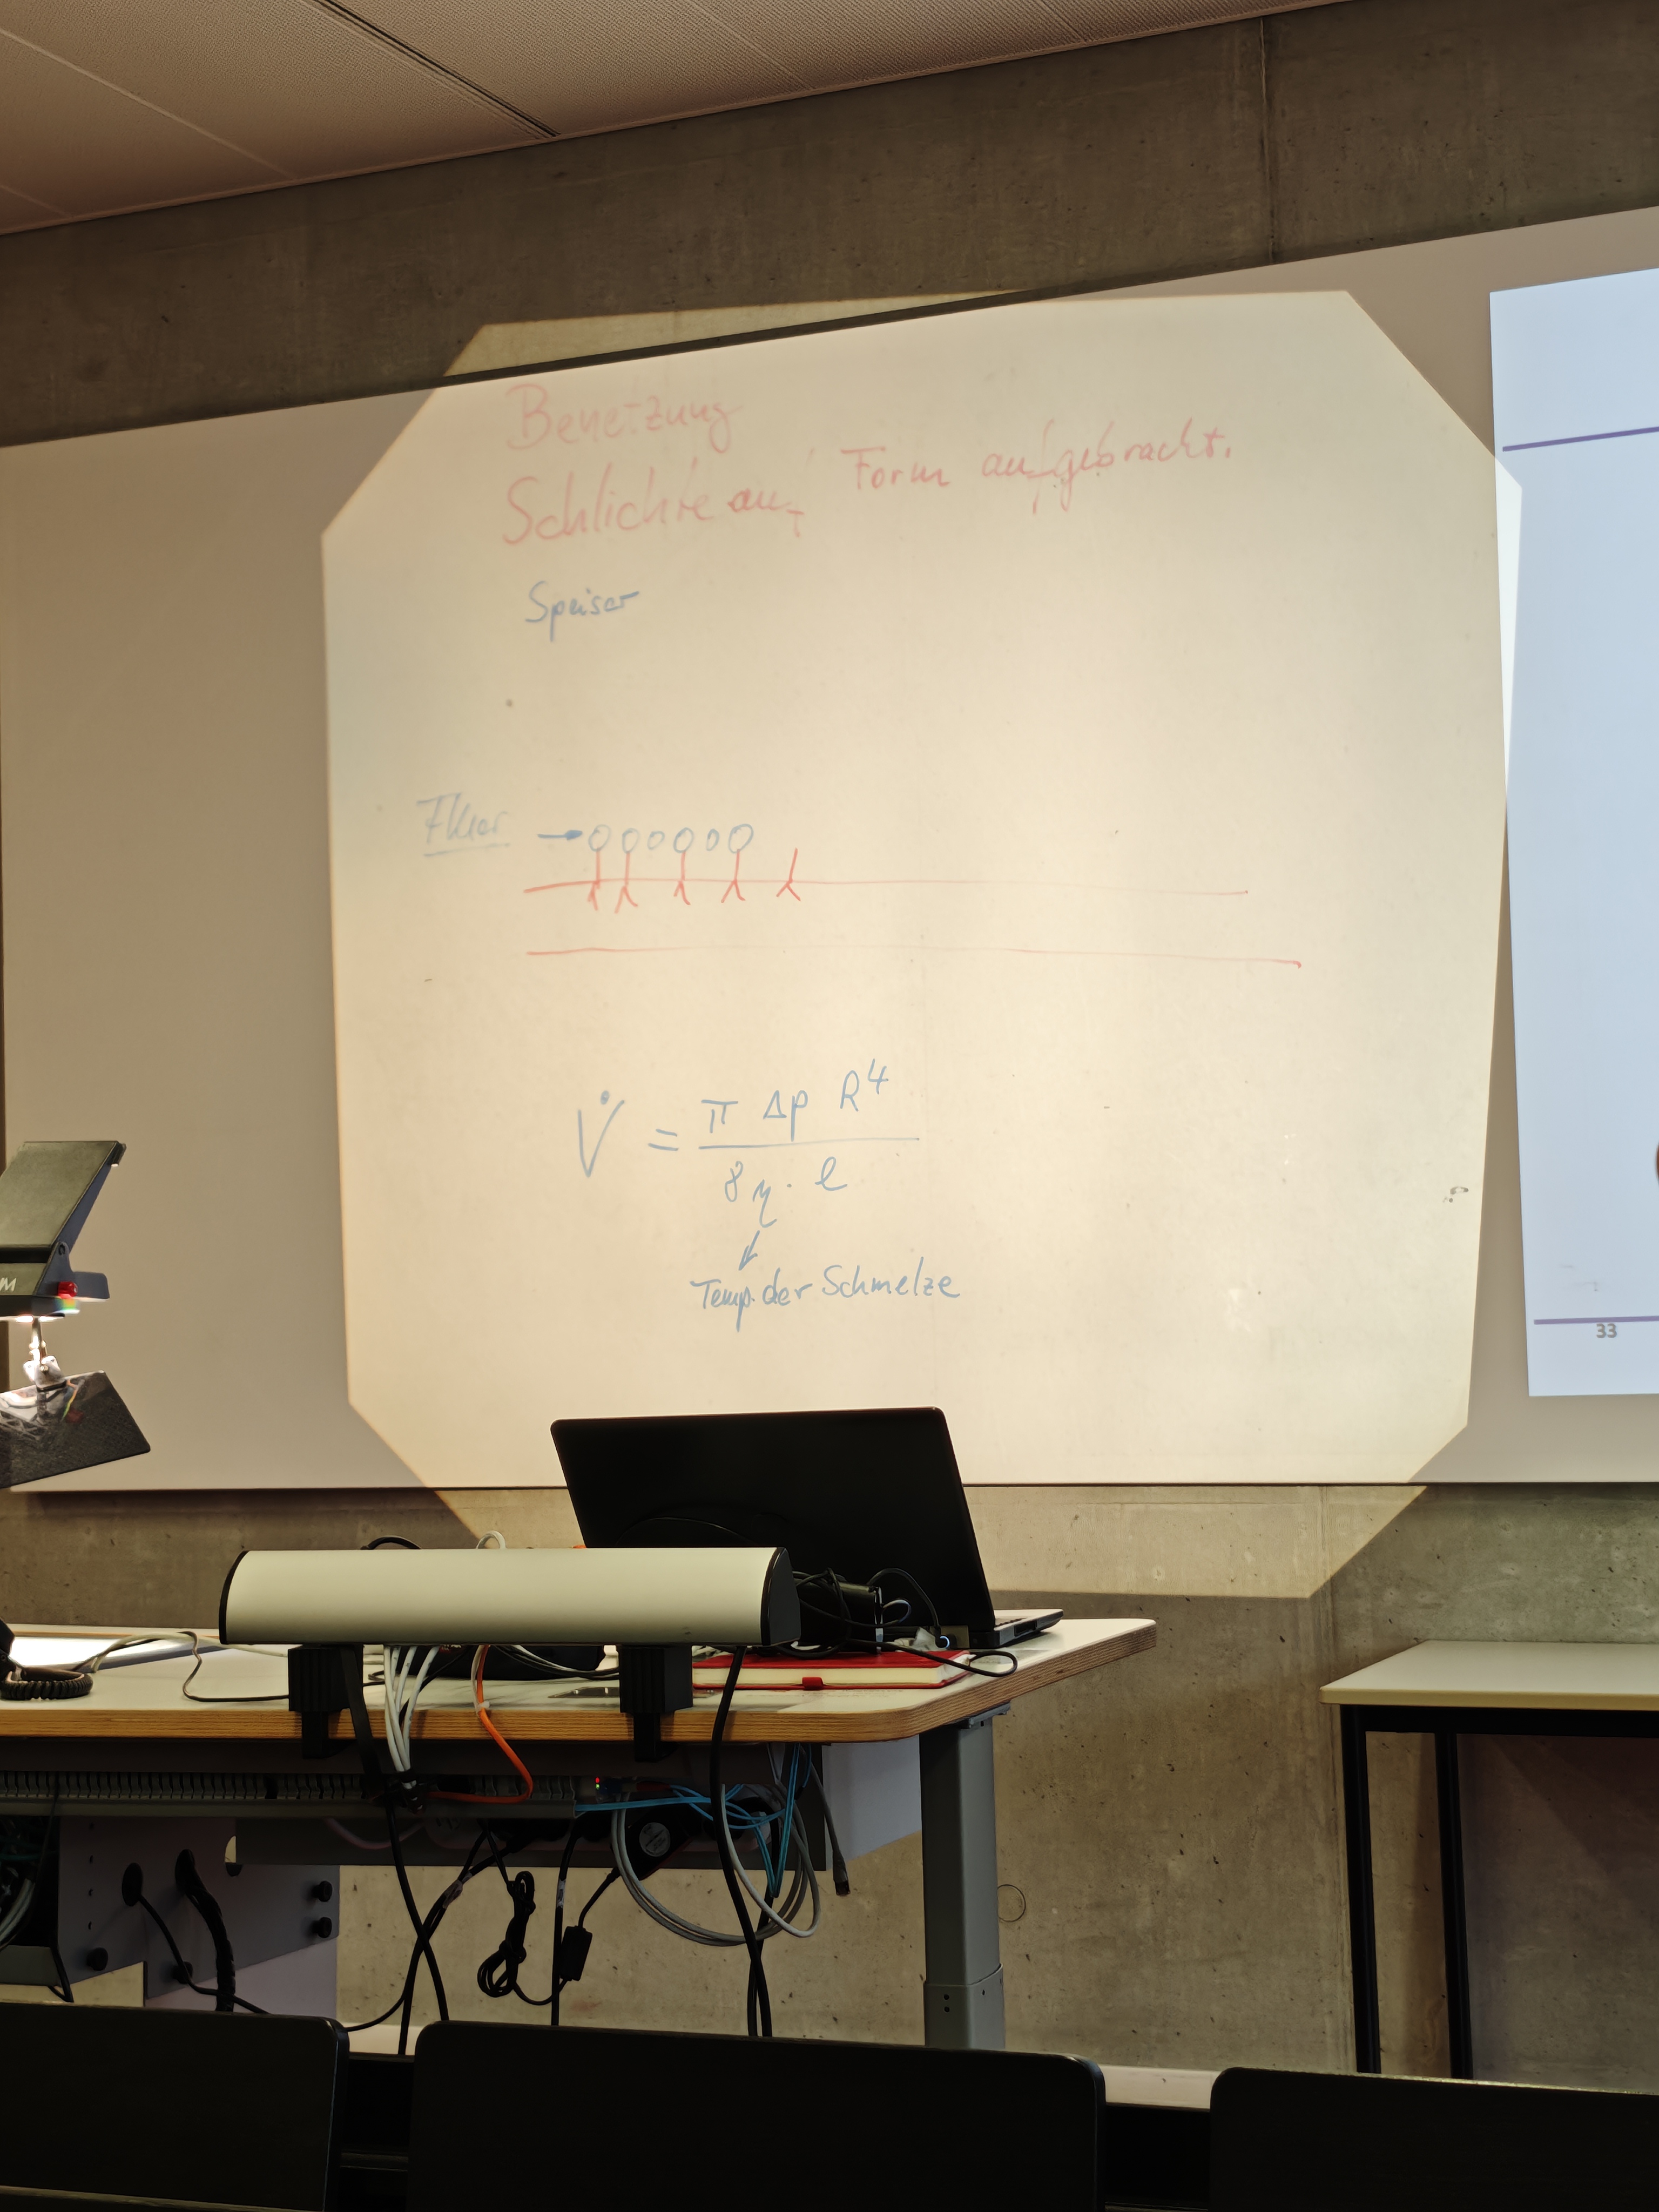 Benetzung
Schlichte auf Form aufgebracht.
Speiser
V̇ = π Δp R⁴
8 η · l
Temp. der Schmelze
33